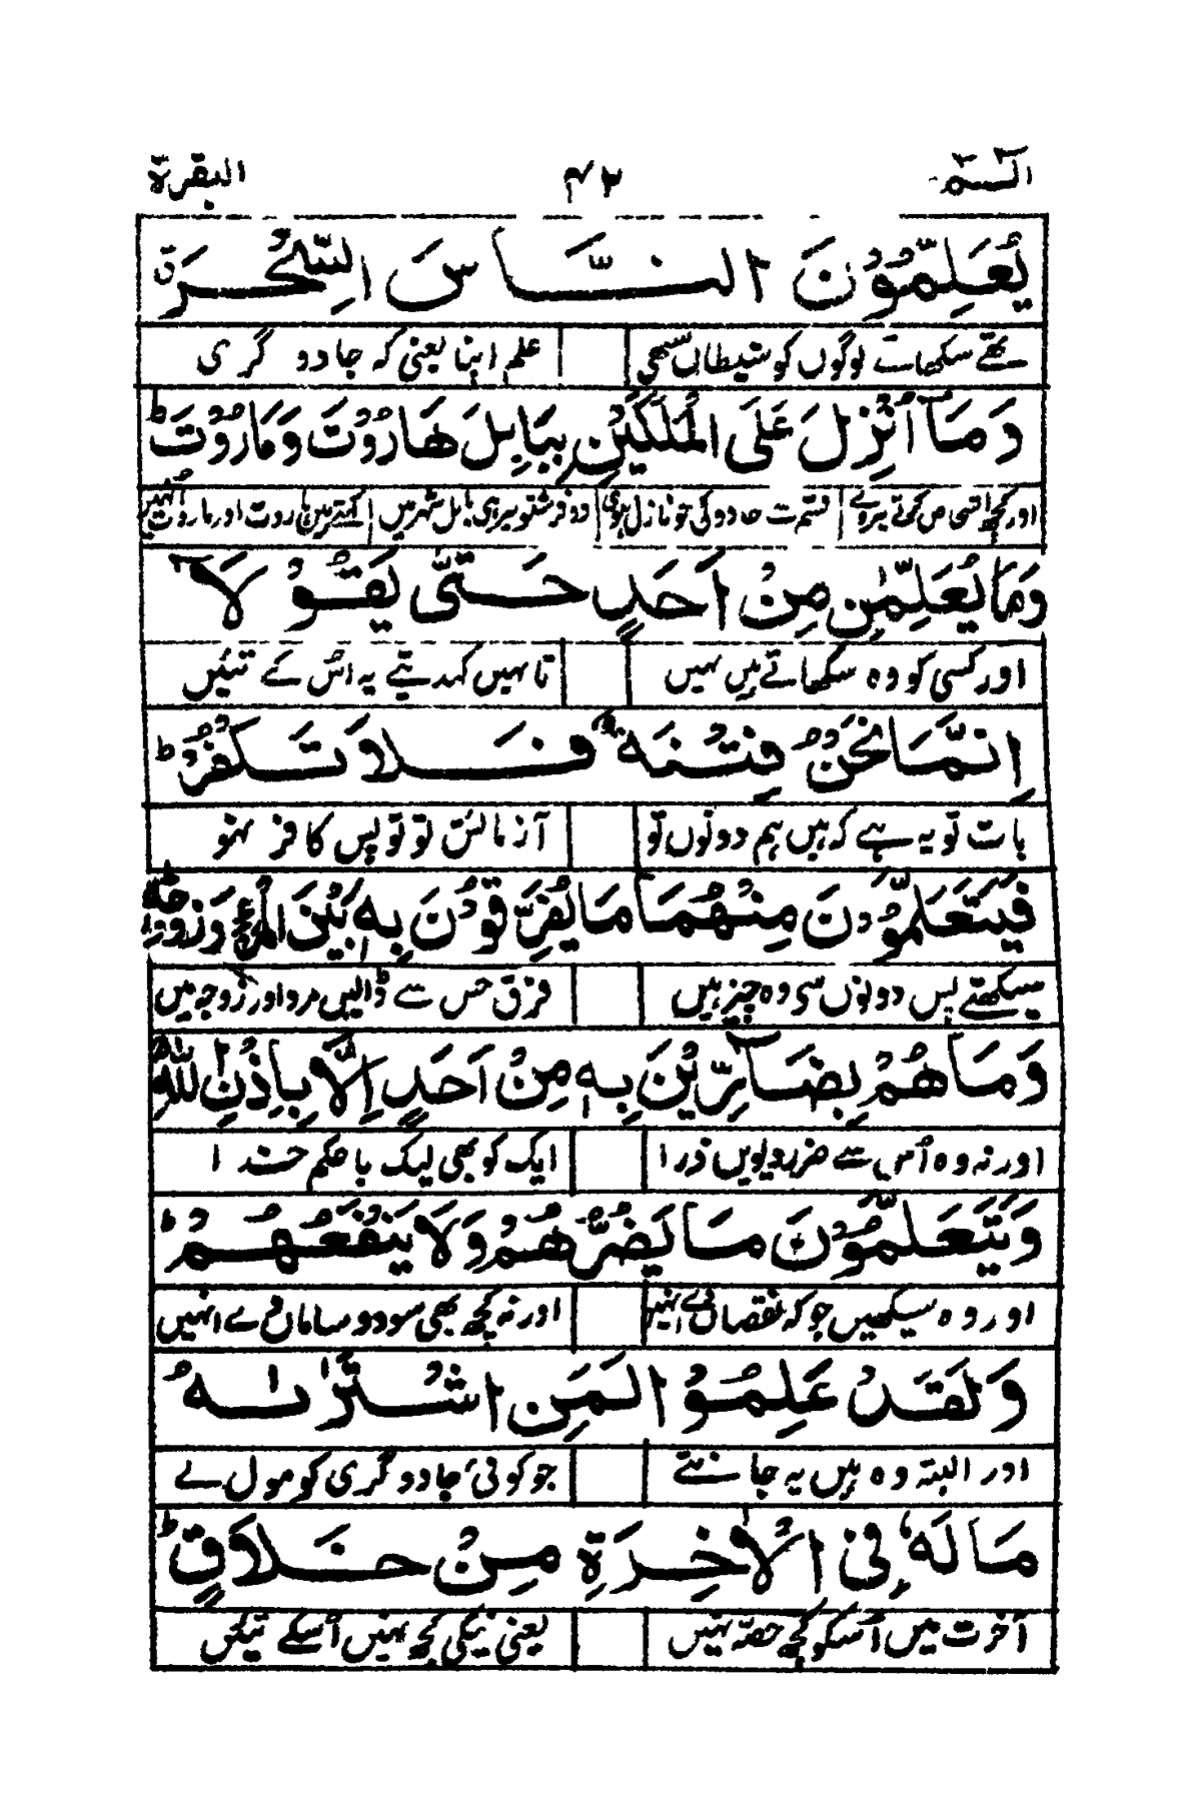 الٓـمٓ ۴۲ البقرة
يُعَلِّمُوۡنَ النَّاسَ السِّحۡرَ ق
تھے سکھاتے لوگوں کو شیطاں سبھی علم اپنا یعنی کہ جادو گری
وَمَآ اُنۡزِلَ عَلَى الۡمَلَكَيۡنِ بِبَابِلَ هَارُوۡتَ وَمَارُوۡتَ ط
اور کچھ اس کی تھے پیرو قسم جادو کی جو نازل ہوئی دو فرشتو پر ہی بابل شہر میں کہتے ہیں ہاروت اور ماروت انہیں
وَمَا يُعَلِّمٰنِ مِنۡ اَحَدٍ حَتّٰى يَقُوۡلَاۤ
اور کسی کو وہ سکھاتے ہیں نہیں تا نہیں کہدیتے یہ اس کے تئیں
اِنَّمَا نَحۡنُ فِتۡنَةٌ فَلَا تَكۡفُرۡ ط
بات تو یہ ہے کہ ہیں ہم دونوں تو آزمائش تو تو پس کافر نہو
فَيَتَعَلَّمُوۡنَ مِنۡهُمَا مَا يُفَرِّقُوۡنَ بِهٖ بَيۡنَ الۡمَرۡءِ وَزَوۡجِهٖ ط
سیکھتے پس دونوں سی وہ چیز ہیں فرق جس سے ڈالیں مرد اور زوجہ میں
وَمَا هُمۡ بِضَآرِّيۡنَ بِهٖ مِنۡ اَحَدٍ اِلَّا بِاِذۡنِ اللّٰهِ ط
اور نہ وہ اُس سے ضرر دیویں ذرا ایک کو بھی لیک با حکم خدا
وَيَتَعَلَّمُوۡنَ مَا يَضُرُّهُمۡ وَلَا يَنۡفَعُهُمۡ ط
اور وہ سیکھیں جو کہ نقصاں دے انہیں اور نہ کچھ بھی سود و ساماں دے انہیں
وَلَقَدۡ عَلِمُوۡا لَمَنِ اشۡتَرٰىهُ
اور البتہ وہ ہیں یہ جانتے جو کوئی جادو گری کو مول لے
مَا لَهٗ فِى الۡاٰخِرَةِ مِنۡ خَلَاقٍ ط
آخرت میں اُسکو کچھ حصہ نہیں یعنی نیکی کچھ نہیں اُسکے تئیں